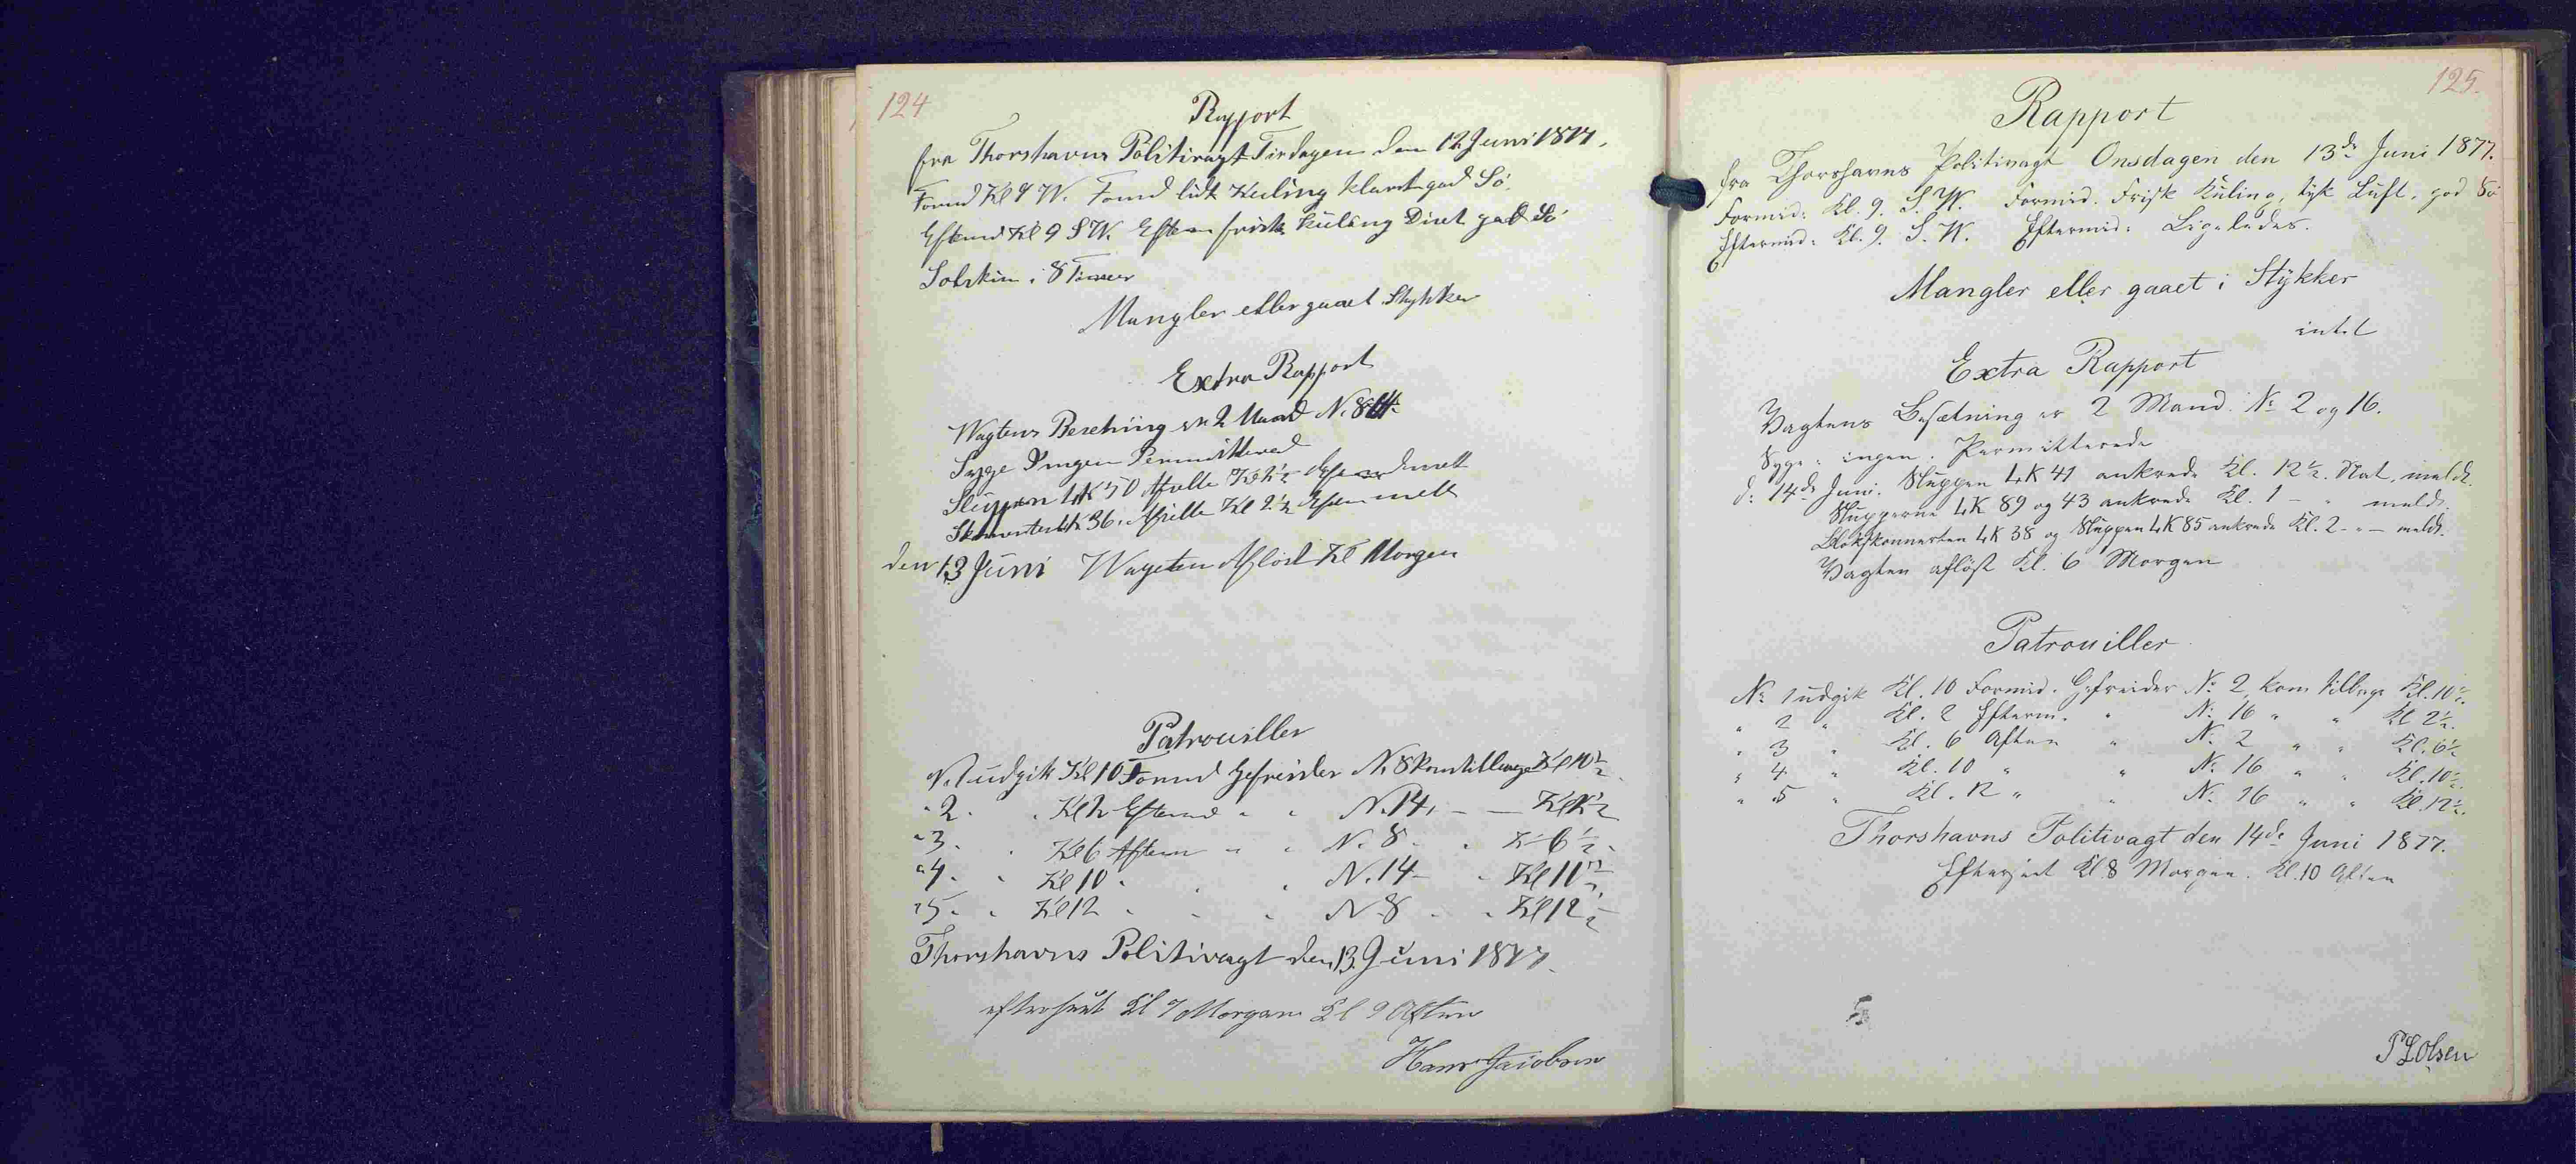 124
Rapport
fra Thorshavns Politivagt Tirdagen den 12 Juni 1877.
Formd Kl 9 W. Formd lidt Kuling klart god Sö.
Eftmd Kl 9 SW. Eftm frisk Kuling Diset god Sö
Solskin i 8 Timer
Mangler eller gaaet Stykker
Extra Rapport
Wagtens Besetning er 2 Mand N. 8
Syge Ingen Permittered
Sluppen LK 50 Afseilte Kl 2½ meldt
LK 36 Kl 2½ meldt
den 13 Juni Wagten Aflöst Kl Morgen
Patrouiller
N. 1 udgik Kl 10 Formd Gefreider N. 8 kom tilbage Kl 10½
" 2 " Kl 2 Eftmd " " N. 14 - - Kl 2½
" 3 " Kl 6 Aften " " N. 8 " " Kl 6½
" 4 " Kl 10 " " " N. 14 - " Kl 10½
" 5 " " Kl 12 " " " N. 8 " " Kl 12½
Thorshavns Politivagt den 13. Juni 1877.
efterseet Kl 7 Morgen Kl 9 Aften
Hans Jacobsen
125.
Rapport
fra Thorshavns Politivagt Onsdagen den 13de Juni 1877.
Formid: Kl. 9. S.W. Formid. Frisk Kuling, tyk Luft, god Sö
Eftermid: Kl. 9. S.W. Eftermid: Ligeledes.
Mangler eller gaaet i Stykker
intet
Extra Rapport
Vagtens Besætning er 2 Mand. No 2 og 16.
Syge: ingen. Permitterede
d: 14de Juni. Sluppen LK 41 ankrede Kl. 12½ Nat, meldt.
Slupperne LK 89 og 43 ankrede Kl. 1 - " meldt.
LK 38 og Sluppen LK 85 ankrede Kl. 2 - " - meldt.
Vagten aflöst Kl. 6 Morgen
Patrouiller
No 1 udgik Kl. 10 Formid. Gefreider No 2, kom tilbage Kl. 10½.
" 2 " Kl. 2 Efterm. " No 16 " " Kl 2½.
" 3 " Kl. 6 Aften " No 2 " " Kl. 6½
" 4 " Kl. 10 " " No 16 " " Kl. 10½.
" 5 " Kl. 12 " " No 16 " " Kl. 12½.
Thorshavns Politivagt den 14de Juni 1877.
Efterseet Kl. 8 Morgen. Kl. 10 Aften
Olsen